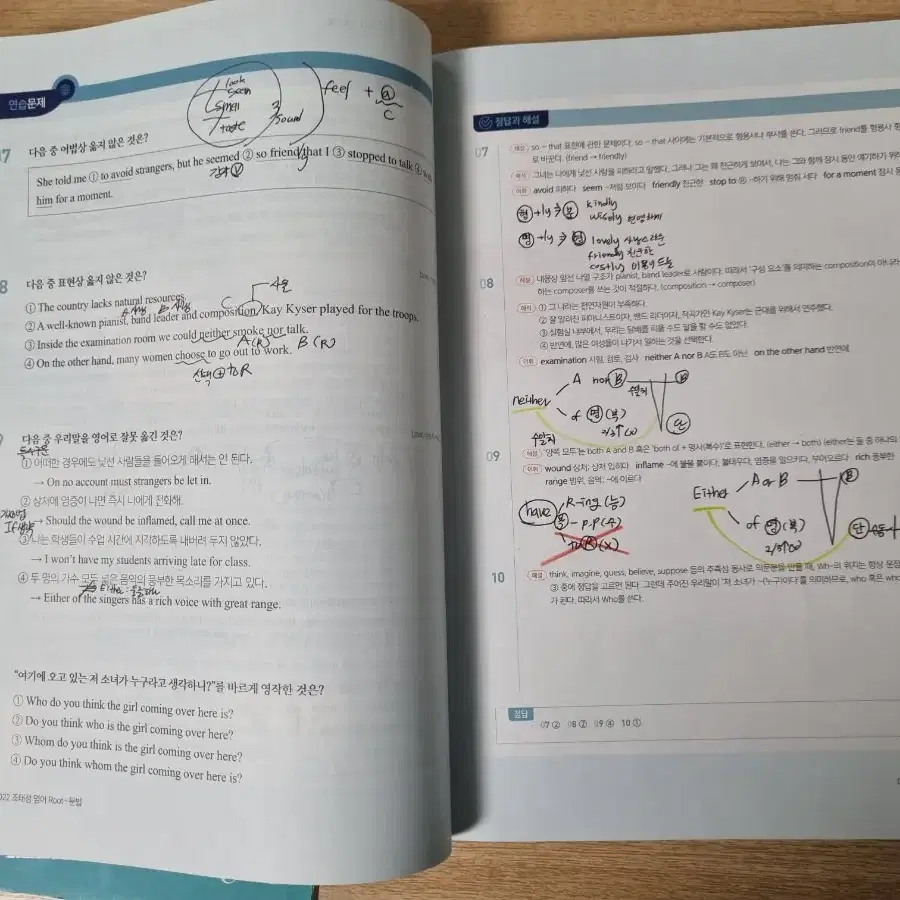 연습문제
look
seem
smell
taste
sound
feel + ⓐ
C
7 다음 중 어법상 옳지 않은 것은?
She told me ① to avoid strangers, but he seemed ② so friend that I ③ stopped to talk ④
him for a moment.
8 다음 중 표현상 옳지 않은 것은?
① The country lacks natural resources.
② A well-known pianist, band leader and composition, Kay Kyser played for the troops.
사물
C
③ Inside the examination room we could neither smoke nor talk.
A(R) B(R)
④ On the other hand, many women choose to go out to work.
선택 + to R
9 다음 중 우리말을 영어로 잘못 옮긴 것은?
① 어떠한 경우에도 낯선 사람들을 들어오게 해서는 안 된다.
→ On no account must strangers be let in.
② 상처에 염증이 나면 즉시 나에게 전화해.
→ Should the wound be inflamed, call me at once.
③ 나는 학생들이 수업 시간에 지각하도록 내버려 두지 않았다.
→ I won't have my students arriving late for class.
④ 두 명의 가수 모두 넓은 음역의 풍부한 목소리를 가지고 있다.
→ Either of the singers has a rich voice with great range.
"여기에 오고 있는 저 소녀가 누구라고 생각하니?"를 바르게 영작한 것은?
① Who do you think the girl coming over here is?
② Do you think who is the girl coming over here?
③ Whom do you think is the girl coming over here?
④ Do you think whom the girl coming over here is?
022 조태정 영어 Root-문법
정답과 해설
07 해설 so ~ that 표현에 관한 문제이다. so ~ that 사이에는 기본적으로 형용사나 부사를 쓴다. 그러므로 friend를 형용사
로 바꾼다. (friend → friendly)
해석 그녀는 나에게 낯선 사람을 피하라고 말했다. 그러나 그는 꽤 친근하게 보여서, 나는 그와 함께 잠시 동안 얘기하기 위해
어휘 avoid 피하다 seem ~처럼 보이다 friendly 친근한 stop to ⓡ ~하기 위해 멈춰 서다 for a moment 잠시
형 +ly ⇒ 부 kindly
wisely 현명하게
명 +ly ⇒ 형 lovely 사랑스러운
friendly 친근한
costly 비용이 드는
08 해설 내용상 앞선 나열 구조가 pianist, band leader로 사람이다. 따라서 '구성 요소'를 의미하는 composition이 아니라
하는 composer를 쓰는 것이 적절하다. (composition → composer)
해석 ① 그 나라는 천연자원이 부족하다.
② 잘 알려진 피아니스트이자, 밴드 리더이자, 작곡가인 Kay Kyser는 군대를 위해서 연주했다.
③ 실험실 내부에서, 우리는 담배를 피울 수도 말을 할 수도 없었다.
④ 반면에, 많은 여성들이 나가서 일하는 것을 선택한다.
어휘 examination 시험, 검토, 검사 neither A nor B A도 B도 아닌 on the other hand 반면에
neither
A nor B
수일치
B
of 명(복)
단
수일치
09 해설 '양쪽 모두'는 both A and B 혹은 'both of + 명사(복수)'로 표현한다. (either → both) (either는 둘 중 하나의
어휘 wound 상처; 상처 입히다 inflame ~에 불을 붙이다, 불태우다, 염증을 일으키다, 부어오르다 rich 풍부한
range 범위, 음역; ~에 이르다
have
R-ing (능)
p.p (수)
to R (x)
Either
A or B
B
of 명(복)
단
10 해설 think, imagine, guess, believe, suppose 등의 추측성 동사로 의문문을 만들 때, Wh-의 위치는 항상 문장
③ 중에 정답을 고르면 된다. 그런데 주어진 우리말이 '저 소녀가 ~(누구)이다'를 의미하므로, who 혹은
가 된다. 따라서 Who를 쓴다.
정답 07 ② 08 ② 09 ④ 10 ①